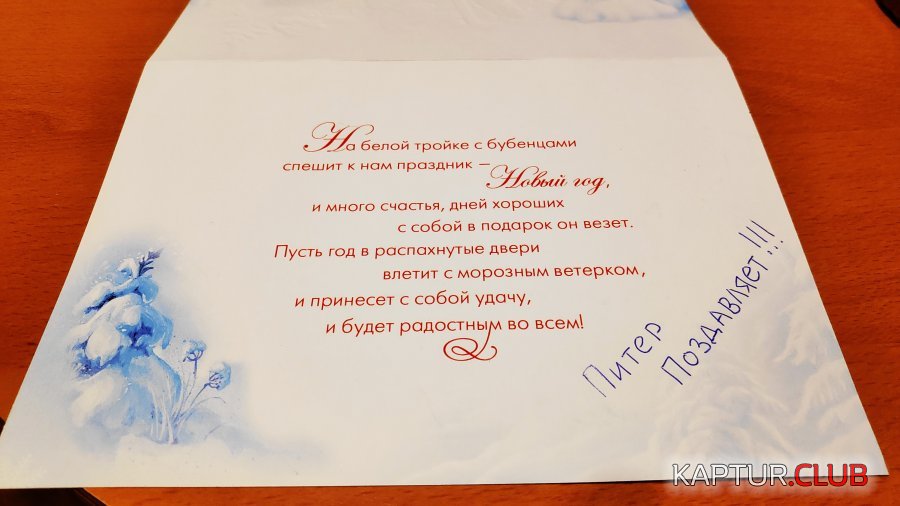 На белой тройке с бубенцами
спешит к нам праздник –
Новый год,
и много счастья, дней хороших
с собой в подарок он везет.
Пусть год в распахнутые двери
влетит с морозным ветерком,
и принесет с собой удачу,
и будет радостным во всем!
Питер
Поздавляет!!!
KAPTUR.CLUB